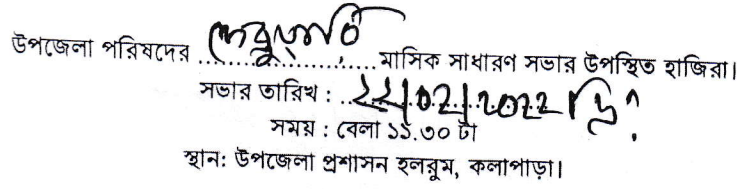 উপজেলা পরিষদের ফেব্রুয়ারি মাসিক সাধারণ সভার উপস্থিত হাজিরা।
সভার তারিখ : ২২/০২/২০২২ খ্রিঃ
সময় : বেলা ১১.৩০ টা
স্থান: উপজেলা প্রশাসন হলরুম, কলাপাড়া।